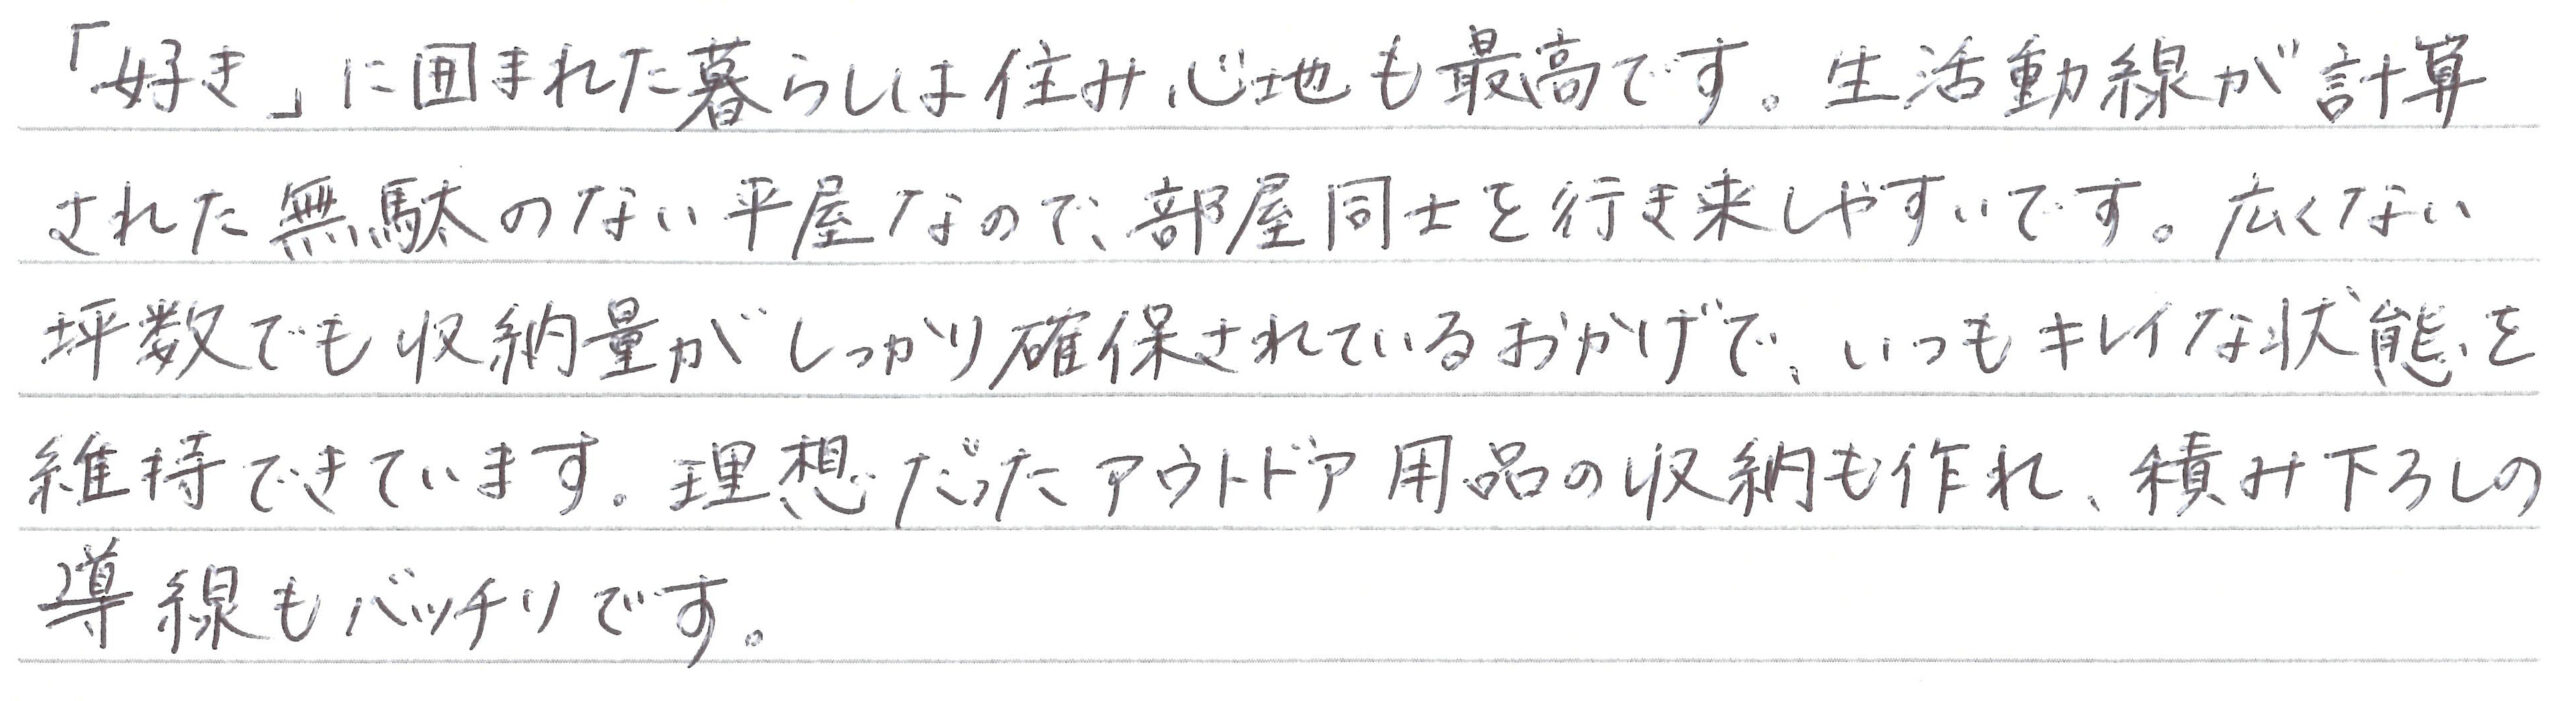 「好き」に囲まれた暮らしは住み心地も最高です。生活動線が計算
された無駄のない平屋なので、部屋同士を行き来しやすいです。広くない
坪数でも収納量がしっかり確保されているおかげで、いつもキレイな状態を
維持できています。理想だったアウトドア用品の収納も作れ、積み下ろしの
導線もバッチリです。